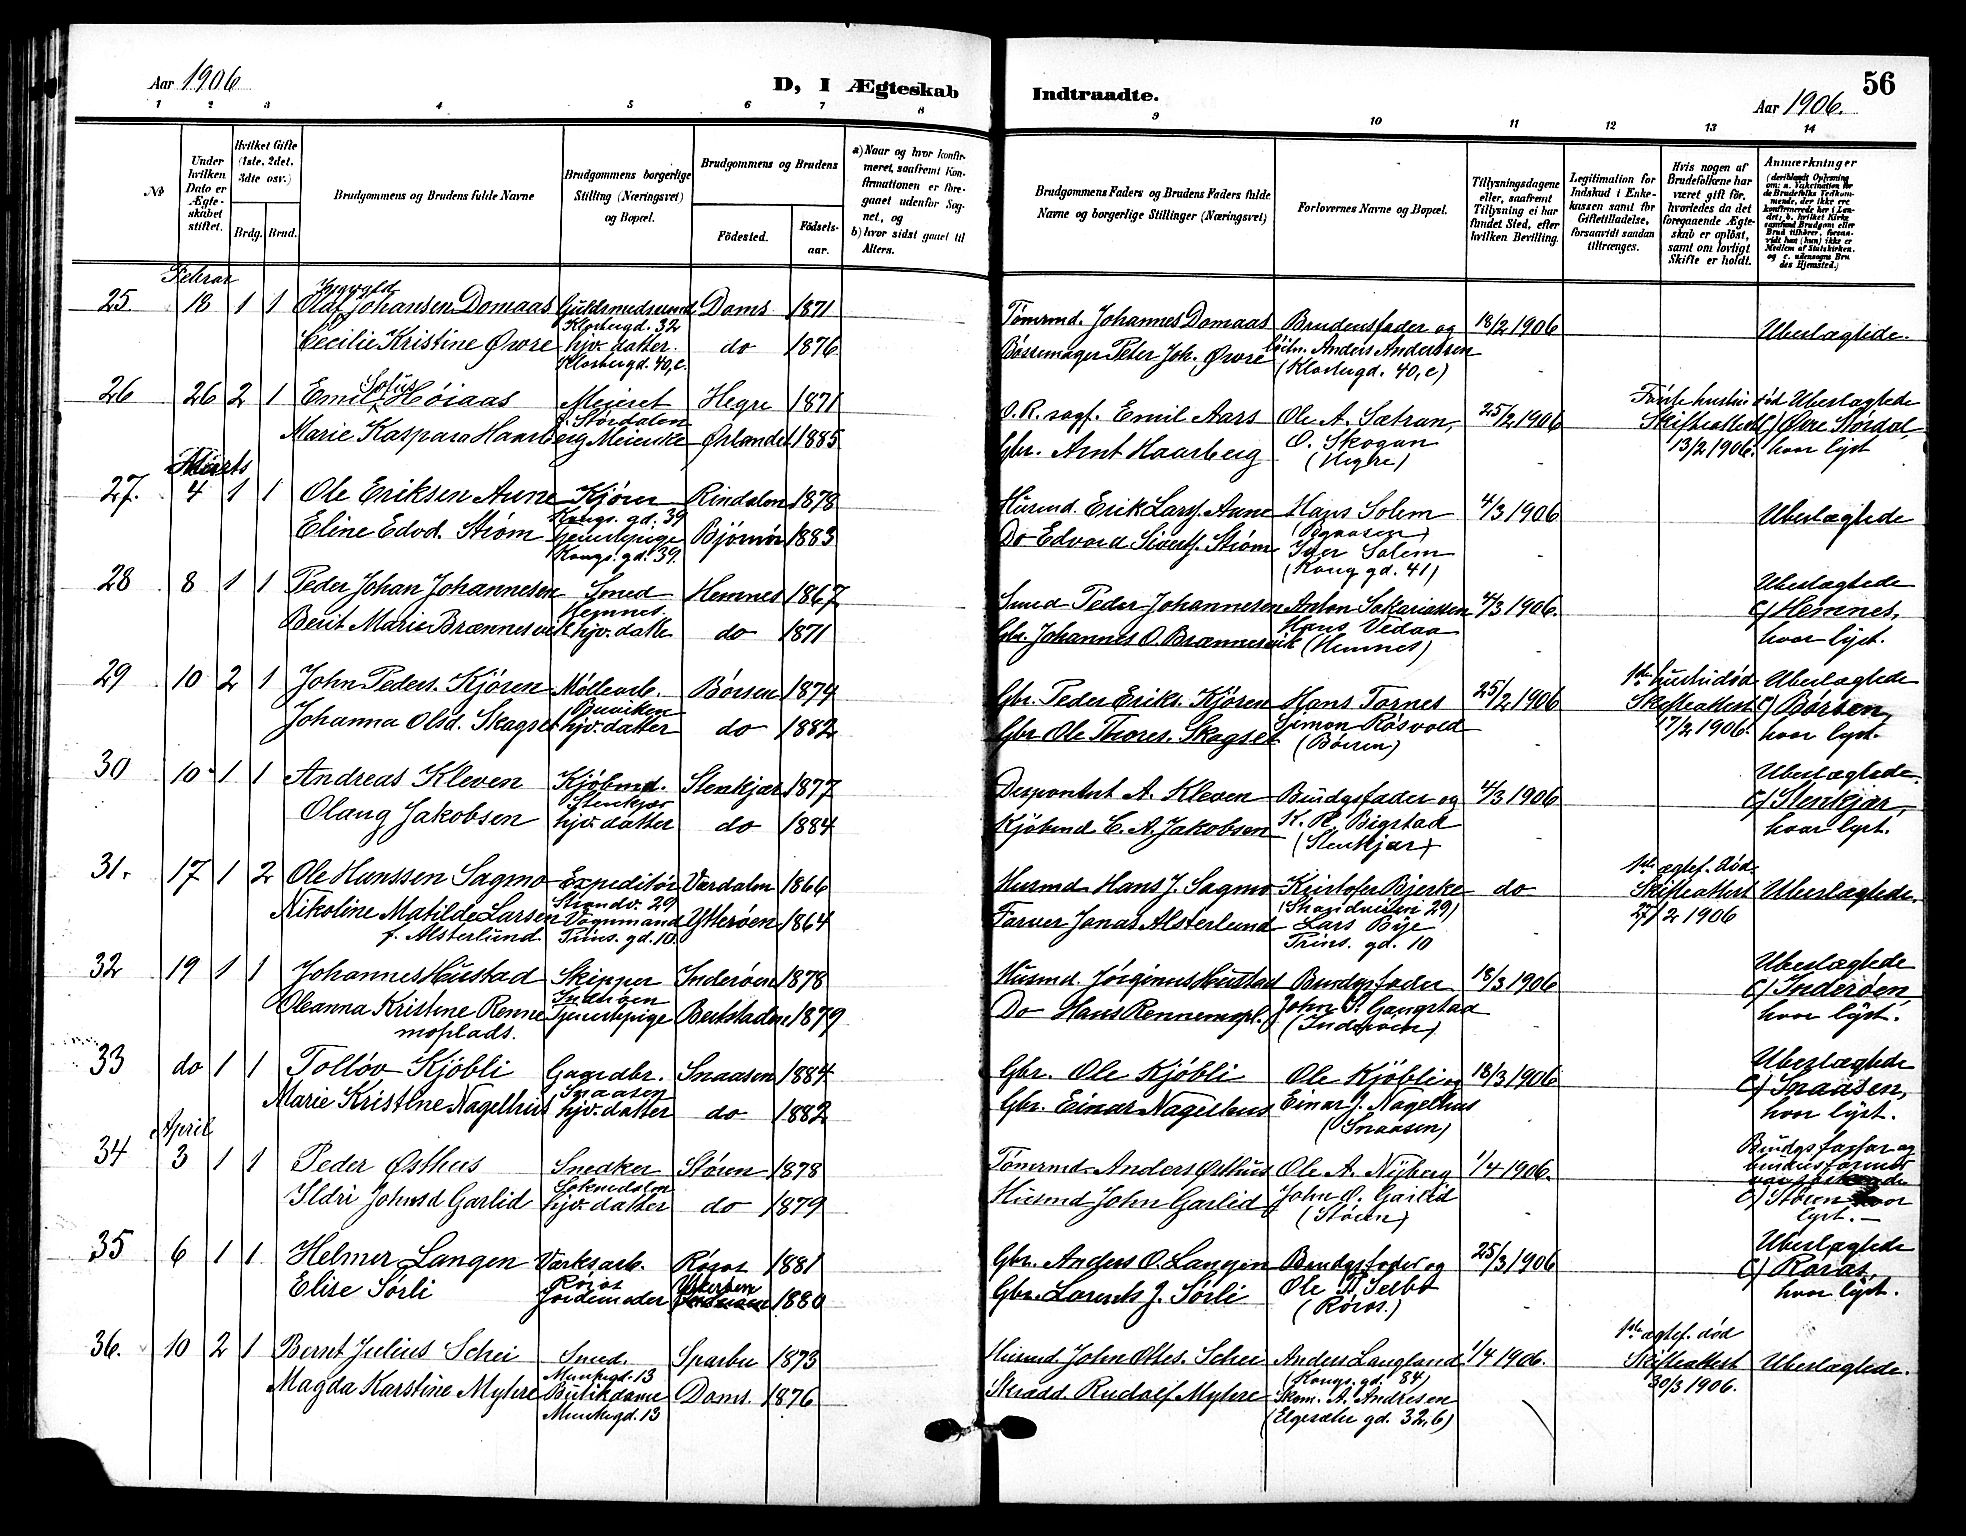 Aar 1906
D, I Ægteskab
Indtraadte.
Aar 1906.
56
1 2 3 4 5 6 7 8 9 10 11 12 13 14
No
Under hvilken Dato er Ægteskabet stiftet.
Hvilket Gifte (1ste, 2det, 3die osv.)
Brdg. Brud.
Brudgommens og Brudens fulde Navne
Brudgommens borgerlige Stilling (Næringsvei) og Bopæl.
Brudgommens og Brudens
Fødested.
Fødselsaar.
a) Naar og hvor konfirmeret, saafremt Konfirmationen er foregaaet udenfor Sognet, og
b) hvor sidst gaaet til Alters.
Brudgommens Faders og Brudens Faders fulde Navne og borgerlige Stillinger (Næringsvei)
Forlovernes Navne og Bopæl.
Tillysningsdagene eller, saafremt Tillysning ei har fundet Sted, efter hvilken Bevilling.
Legitimation for Indskud i Enkekassen samt for Giftetilladelse, forsaavidt saadan tiltrænges.
Hvis nogen af Brudefolkene har været gift før, hvorledes da det foregaaende Ægteskab er opløst, samt om lovligt Skifte er holdt.
Anmærkninger
Februar
25 18 1 1 Olaf Ingvald Johansen Domaas Guldsmedsvend Klostergd. 32 Doms 1871 Tømrmd. Johannes Domaas Brudensfader og 18/2 1906 Ubeslægtede.
Cecilie Kristine Øvre hjv. datter. Klostergd. 40, c. do 1876 Bøssemager Peter Joh. Øvre Anders Anderssen (Klostergd. 40, c)
26 26 2 1 Emil Sofus Høiaas Meieret Hegre 1871 O. R. sagf. Emil Aars Ole A. Sætran, 25/2 1906 Første hustru død Ubeslægtede
Marie Kaspara Haarberg Meierske Ørlandet 1885 Gbr. Arnt Haarberg O. Skogan (Hegre) Skifteattest 13/2 1906. C/ Øvre Størdal, hvor lyst
Marts
27. 4 1 1 Ole Eriksen Aune Kjører Kongs. gd. 39 Rindalen 1878 Husmd. Erik Lars. Aune Hans Solem 4/3 1906 Ubeslægtede
Eline Edvd. Strøm tjenestepige Kongs. gd. 39. Bjørnør 1883 Do Edvard Siverts. Strøm Iver Solem (Kong gd. 41)
28 8 1 1 Peder Johan Johannesen Smed Hemnes. Hemnes 1867 Smed Peder Johannesen Anton Sakariassen 4/3 1906. Ubeslægtede
Berit Marie Brænnesvik hjv. datte do 1871 Gbr. Johannes O. Brænnesvik Hans Vedaa (Hemnes) C/ Hemnes, hvor lyst.
29 10 2 1 John Peders. Kjøren Møllearb. Buviken Børsen 1874 Gbr. Peder Eriks. Kjøren Hans Tornes 25/2 1906 1ste hustru død Ubeslægtede
Johanna Olsd. Skagset hjv. datter do 1882 Gbr. Ole Thores. Skagset Simon Røsvold (Børsen) Skifteattest 17/2 1906. C/ Børsen, hvor lyst.
30 10 1 1 Andreas Kleven Kjøbmd. Stenkjær Stenkjær 1877 Disponent A. Kleven Brudgsfader og 4/3 1906 Ubeslægtede.
Olaug Jakobsen hjv. datter do 1884 Kjøbmd C. A. Jakobsen K. H. Bigstad (Stenkjær) C/ Stenkjær, hvor lyst.
31. 17 1 2 Ole Hanssen Sagmo Expeditør Strandv. 29 Værdalen 1866 Husmd Hans J. Sagmo Kristofer Bjerke (Strandveien 29) do 1ste ægtef. død. Ubeslægtede.
Nikoline Matilde Larsen f. Alsterlund. Vognmand Prins. gd. 10. Ytterøen 1864 Farver Jonas Alsterlund Lars Bye Prins. gd. 10 Skifteattest 27/2 1906
32 19 1 1 Johannes Hustad Skipper Inderøen Inderøen 1878 Husmd. Jørginus Hustad Brudgsfader 18/3 1906 Ubeslægtede
Oleanna Kristine Rennemoplads. Tjenestepige Beitstaden 1879 Do Hans Rennemopl. John P. Gangstad (Inderøen) C/ Inderøen, hvor lyst.
33 do 1 1 Tolløv Kjøbli Gaardbr. Snaasen Snaasen 1884 Gbr. Ole Kjøbli Ole Kjøbli og 18/3 1906 Ubeslægtede
Marie Kristine Nagelhus hjv. datter do 1882 Gbr. Einar Nagelhus Einar J. Nagelhus (Snaasen) C/ Snaasen, hvor lyst.
April
34 3 1 1 Peder Østhus Snedker Soknedalen Støren 1878 Tømrmd. Anders Østhus Ole A. Nyberg 1/4 1906. Brudgs farfar og
Ildri Johnsd Garlid hjv. datter do 1879 Husmd John Garlid John O. Garlid (Støren) brudens farmor var søskende C/ Støren hvor lyst.
35 6 1 1 Helmer Langen Værksarb. Røros Røros 1881 Gbr. Anders O. Langen Brudgsfader og 25/3 1906 Ubeslægtede
Elise Sørli Jordemoder Ytterøen 1880 Gbr. Lorents J. Sørli Ole Selbo (Røros.) C/ Røros, hvor lyst.
36. 10 2 1 Bernt Julius Schei Smed. Munkegd. 13 Sparbu 1873 Husmd. John Ottes. Schei Anders Langland (Kongs. gd. 84) 1/4 1906. 1ste ægtef. død Ubeslægtede.
Magda Karstine Myhre Butikdame Munkegd. 13 Doms. 1876 Skrædd. Rudolf Myhre Skom. A. Andresen (Elgesæter gd. 32, b) Skifteattest 30/3 1906.